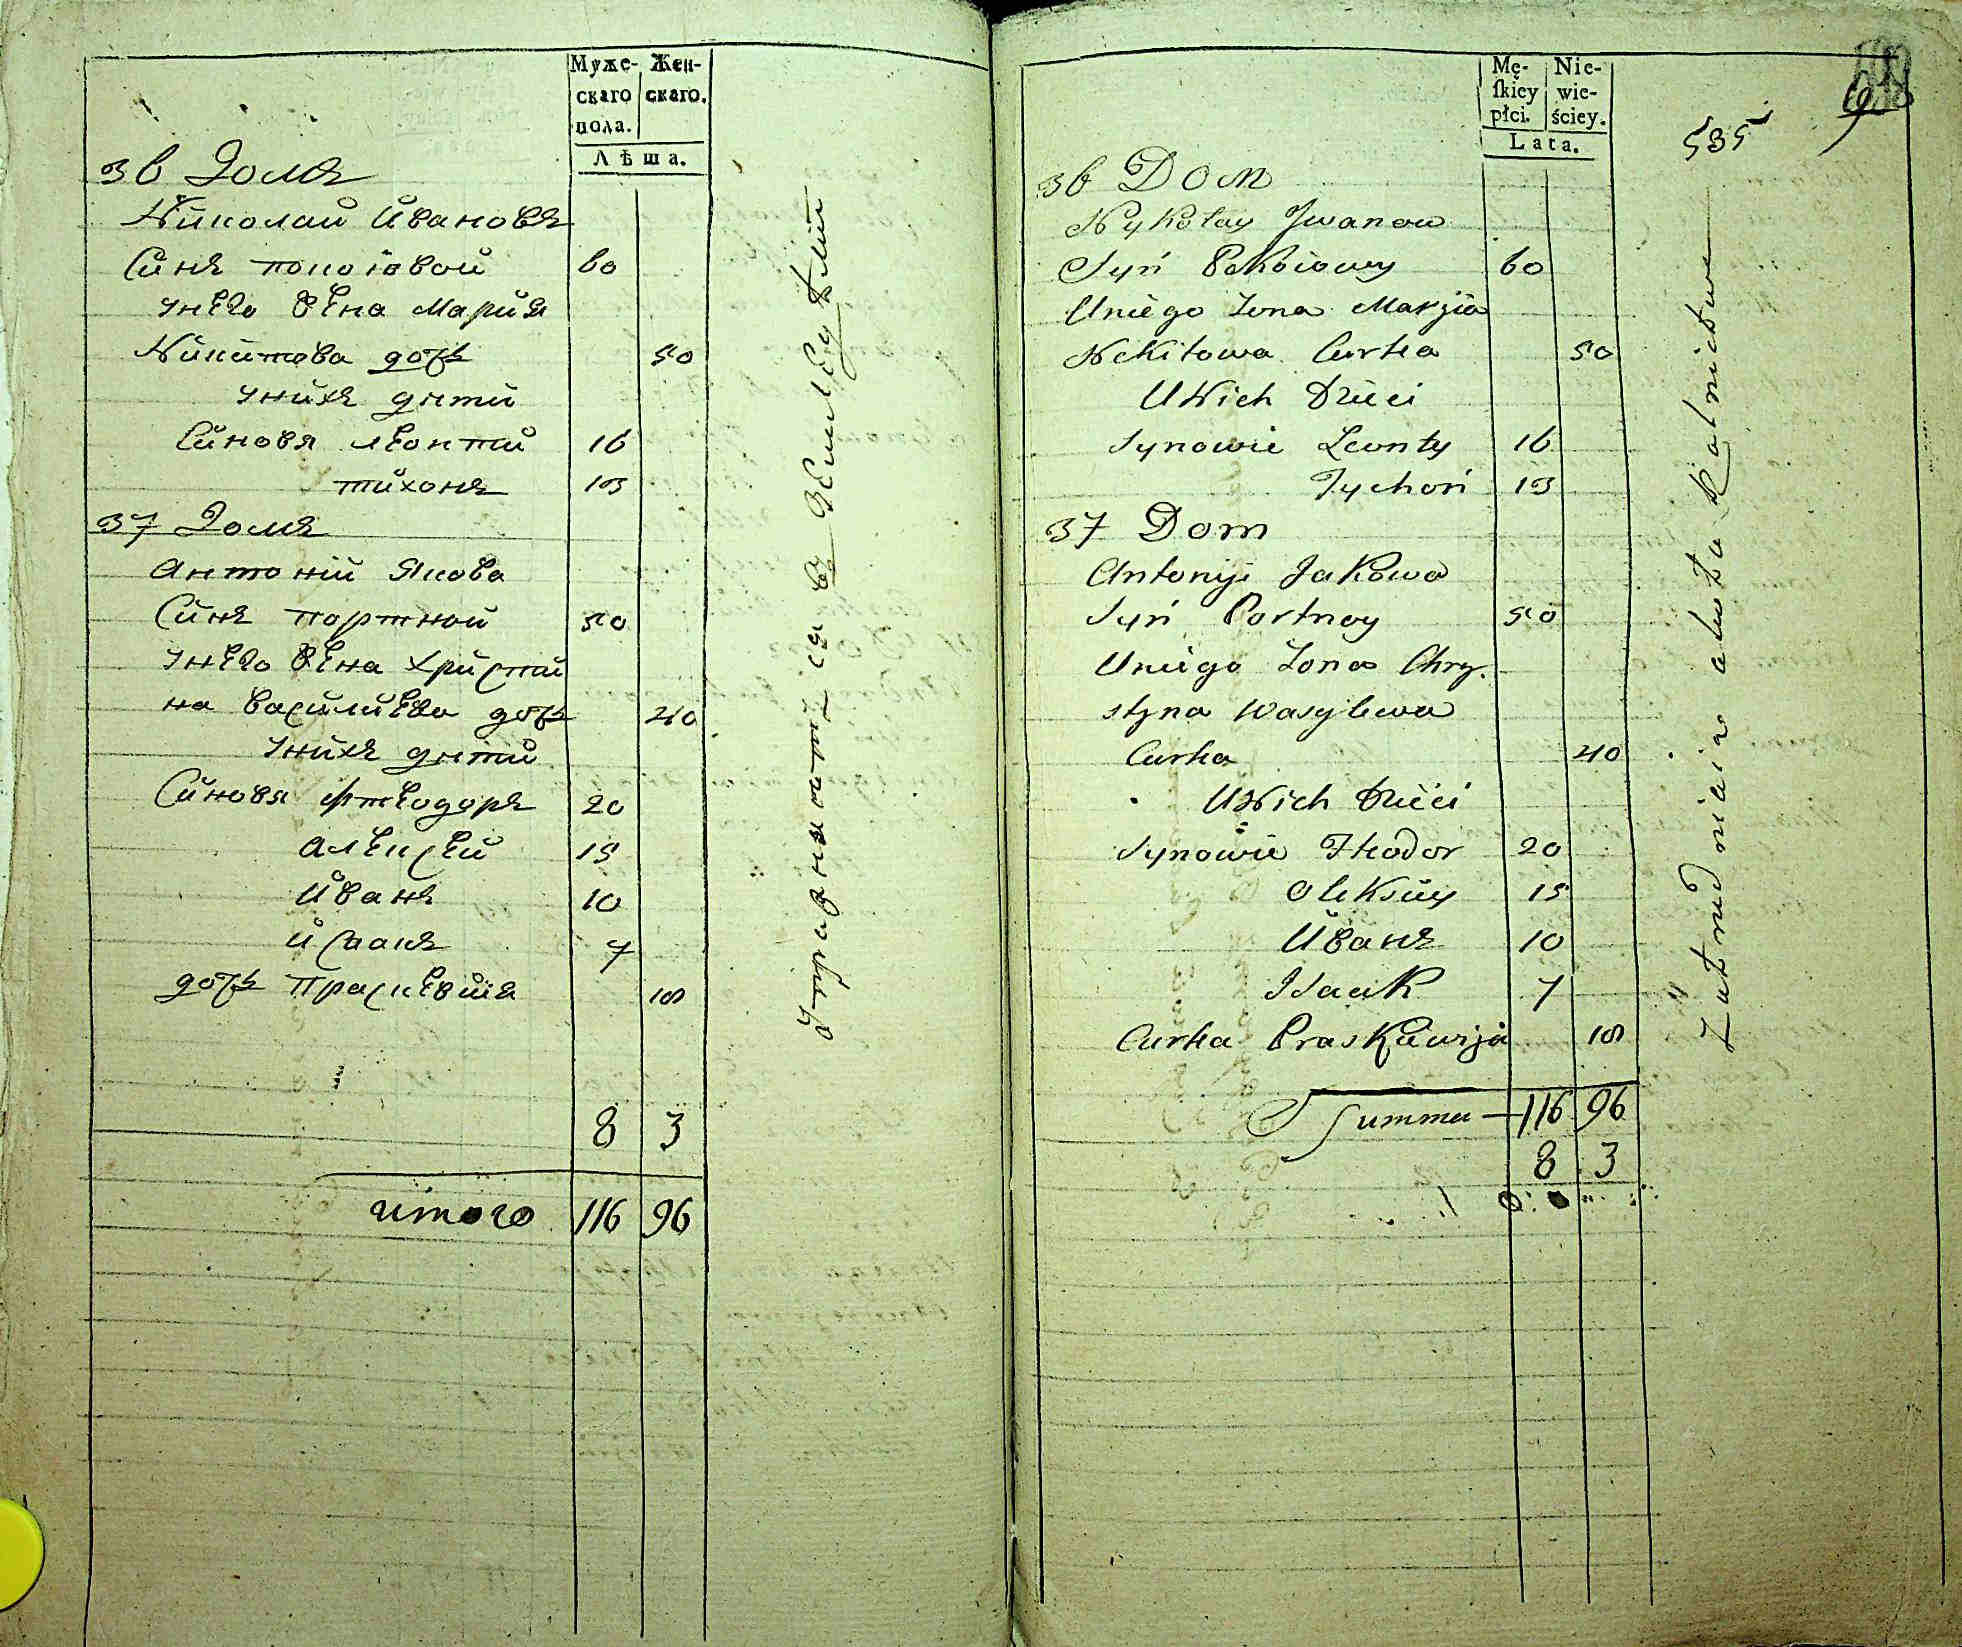 Муже-
скаго
пола.
Жен-
скаго.
Лѣта.
36 Домъ
Николай Ивановъ
Синъ покоювой 60
унего жена Мария
Никитова дочь 50
унихъ дѣти
Синовя Леонтий 16
Тихонъ 13
37 Домъ
Антоний Якова
Синъ портной 50
унего жена Христи
на Василиева дочь 40
унихъ дѣти
Синовя Фтеодоръ 20
Алексей 15
Иванъ 10
Исаакъ 7
дочь Праскевия 18
8 3
итого 116 96
Упражняютъся въ Земледѣлии
Mę-
ſkiey
płci.
Nie-
wie-
ściey.
Lata.
535
36 Dom
Nykołay Jwanow
Syń Pokoiowy 60
Uniego Żona Maryia
Nekitowa Curka 50
UNich Dzieci
Synowie Leonty 16
Tychoń 13
37 Dom
Antonyi Jakowa
Syń Portnoy 50
Uniego Żona Chry.
styna Wasylewa
Curka 40
UNich Dzieci
Synowie Theodor 20
Oleksiey 15
Иванъ 10
Isaak 7
Curka Praskiewija 18
Summa 116 96
8 3
Zatrudniaią około Rolnictwa